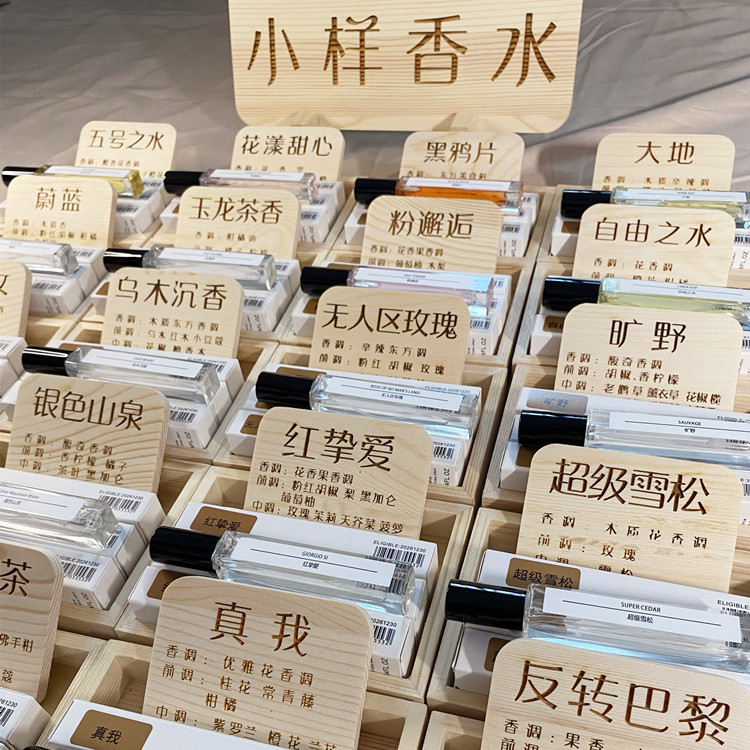 小样香水
五号之水
花漾甜心
黑鸦片
大地
香调：木质辛辣调
蔚蓝
香调：木质香
玉龙茶香
香调：柑橘调
粉邂逅
香调：花香果香调
前调：葡萄柚 木梨
自由之水
香调：花香调
乌木沉香
香调：木质东方香调
前调：乌木红木小豆蔻
无人区玫瑰
香调：辛辣东方调
前调：粉红胡椒 玫瑰
ROSE OF NO MAN'S LAND
无人区玫瑰
ELIGIBLE:20261230
旷野
香调：馥奇香调
前调：胡椒.香柠檬
中调：老鹳草 薰衣草 花椒 榄
旷野
SAUVAGE
旷野
银色山泉
香调：馥奇香调
前调：香柠檬 橘子
中调：茶叶 黑加仑
ELIGIBLE:20261230
红挚爱
香调：花香果香调
前调：粉红胡椒 梨 黑加仑
葡萄柚
中调：玫瑰 茉莉 天芥菜 菠萝
红挚爱
GIORGIO SI
红挚爱
ELIGIBLE:20261230
超级雪松
香调：木质花香调
前调：玫瑰
中调：雪松
超级雪松
SUPER CEDAR
超级雪松
茶
佛手柑
蔻
真我
香调：优雅花香调
前调：桂花 常青藤
柑橘
中调：紫罗兰 橙花 兰花
真我
反转巴黎
香调：果香